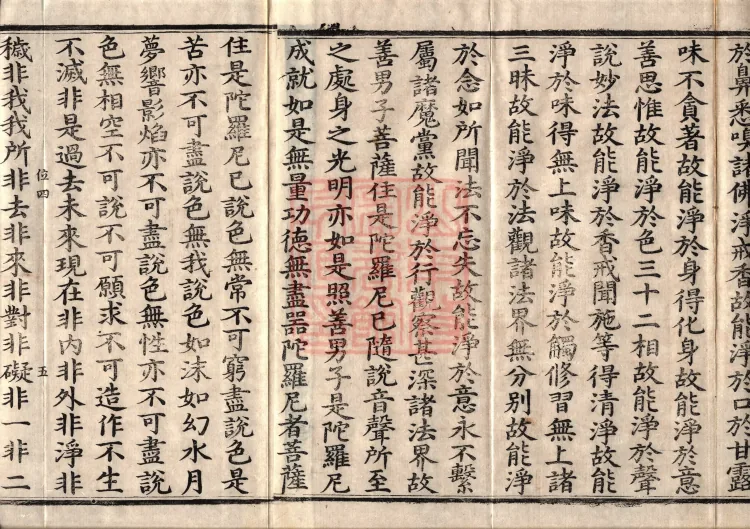 於鼻悉嗅諸佛淨戒香故能淨於口於甘露
味不貪著故能淨於身得化身故能淨於意
善思惟故能淨於色三十二相故能淨於聲
說妙法故能淨於香戒聞施等得清淨故能
淨於味得無上味故能淨於觸修習無上諸
三昧故能淨於法觀諸法界無分別故能淨
於念如所聞法不忘失故能淨於意永不繫
屬諸魔黨故能淨於行觀察甚深諸法界故
善男子菩薩住是陀羅尼已隨說音聲所至
之處身之光明亦如是照善男子是陀羅尼
成就如是無量功德無盡器陀羅尼者菩薩
住是陀羅尼已說色無常不可窮盡說色是
苦亦不可盡說色無我說色如沫如幻水月
夢響影焰亦不可盡說色無性亦不可盡說
色無相空不可說不可願求不可造作不生
不滅非是過去未來現在非內非外非淨非
位四
五
穢非我我所非去非來非對非礙非一非二